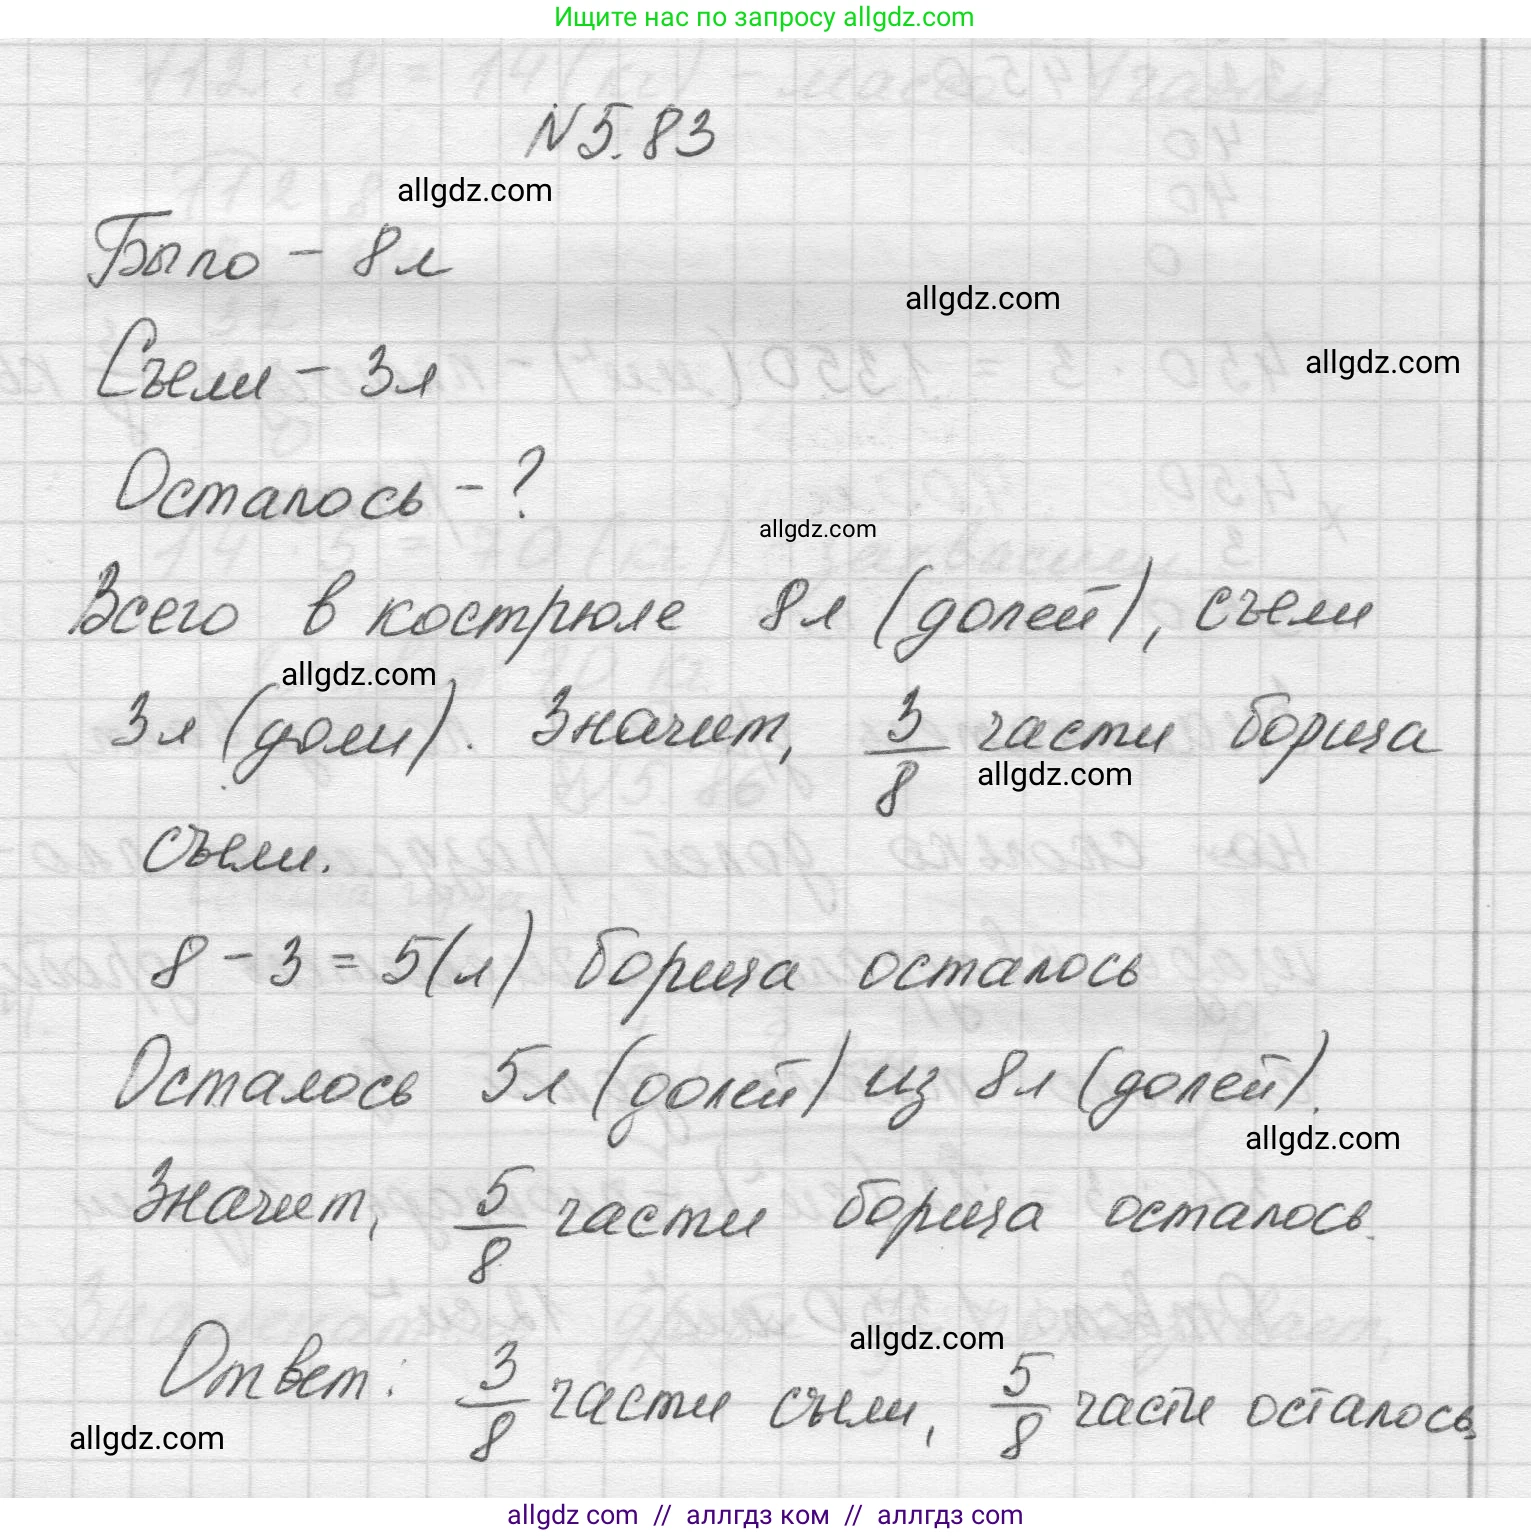 Ищите нас по запросу allgdz.com
N 5.83
allgdz.com
Было - 8л
allgdz.com
Съели - 3л
allgdz.com
Осталось - ?
allgdz.com
Всего в кострюле 8л (долей), съели
allgdz.com
3л (доли). Значит, 3/8 части борща
allgdz.com
съели.
8 - 3 = 5(л) борща осталось
Осталось 5л (долей) из 8л (долей).
allgdz.com
Значит, 5/8 части борща осталось.
allgdz.com
Ответ: 3/8 части съели, 5/8 части осталось.
allgdz.com
allgdz com // аллгдз ком // аллгдз com